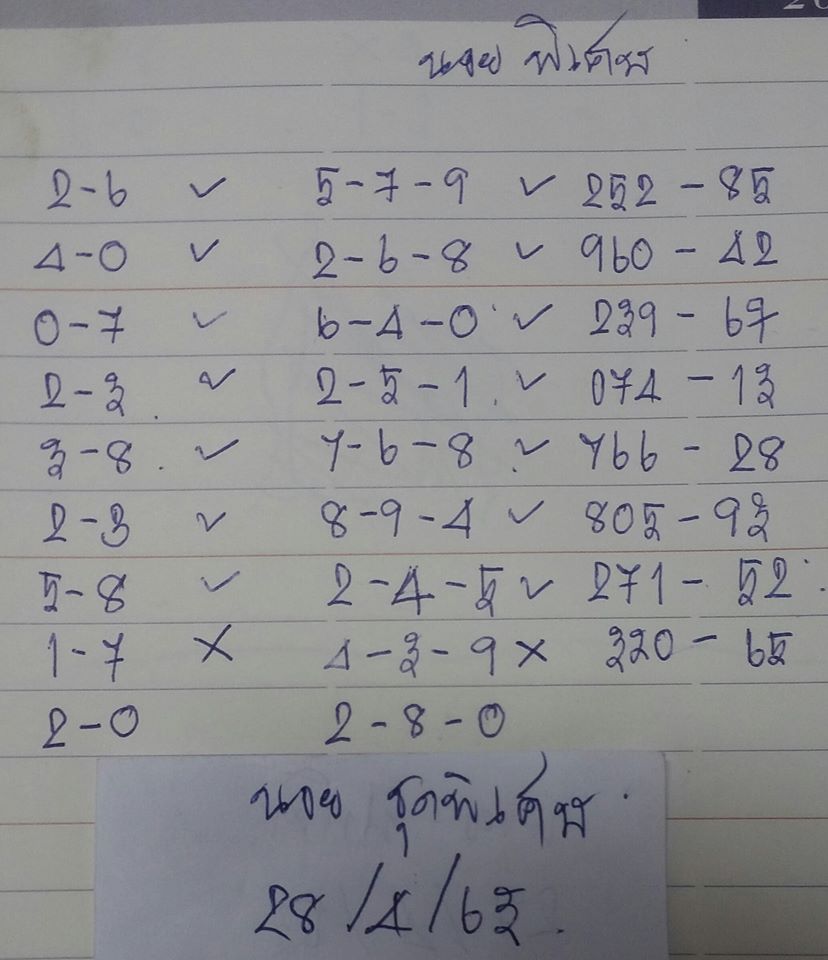 ฮานอย พิเศษ
2-6 ✓ 5-7-9 ✓ 252 - 85
4-0 ✓ 2-6-8 ✓ 960 - 42
0-7 ✓ 6-4-0 ✓ 239 - 67
2-3 ✓ 2-5-1 ✓ 074 - 13
3-8 ✓ 7-6-8 ✓ 766 - 28
2-3 ✓ 8-9-4 ✓ 805 - 93
5-8 ✓ 2-4-5 ✓ 271 - 52
1-7 X 4-3-9 X 320 - 65
2-0 2-8-0
นอย ชุดพิเศษ
28/4/63.